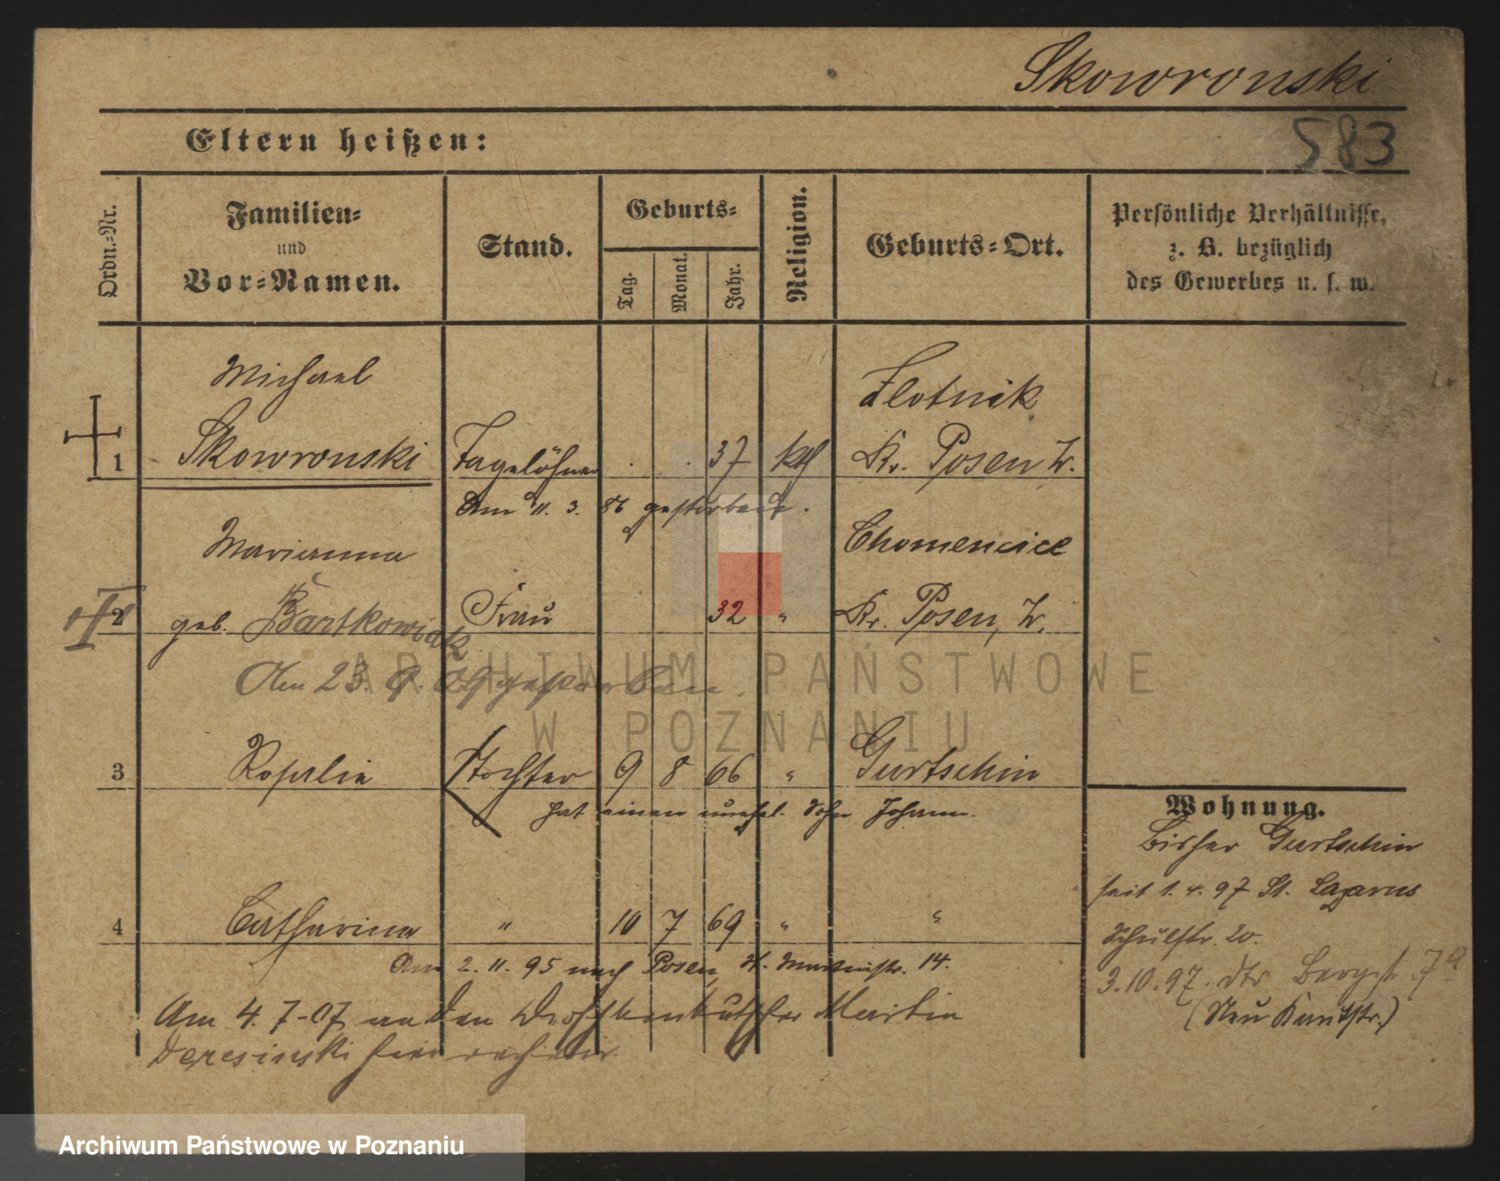 Skowronski
583
Eltern heißen:
Ordn.-Nr.
Familien-
und
Vor-Namen.
Stand.
Geburts-
Tag.
Monat.
Jahr.
Religion.
Geburts-Ort.
Persönliche Verhältnisse,
z. B. bezüglich
des Gewerbes u. s. w.
Michael
Zlotnik
1 Skowronski Tagelöhner . . 37 kth Kr. Posen W.
Am 11. 3. 86 gestorben.
Marianna
Chomencice
2 geb. Bartkowiak Frau 32 " Kr. Posen, W.
Am 23. 9. 09 gestorben.
ARCHIWUM PAŃSTWOWE
W POZNANIU
3 Rosalie Tochter 9 8 66 " Gurtschin
hat einen unehel. Sohn Johann.
4 Catharina " 10 7 69 " "
Am 2. 11. 95 nach Posen, St. Martinstr. 14.
Am 4. 7. 07 an den Droschkenkutscher Martin
Deresinski hier verh.
Wohnung.
Bisher Gurtschin
seit 1. 4. 97 St. Lazarus
Schulstr. 20.
3. 10. 97. dto Bergst 7a
(Neu)
Archiwum Państwowe w Poznaniu